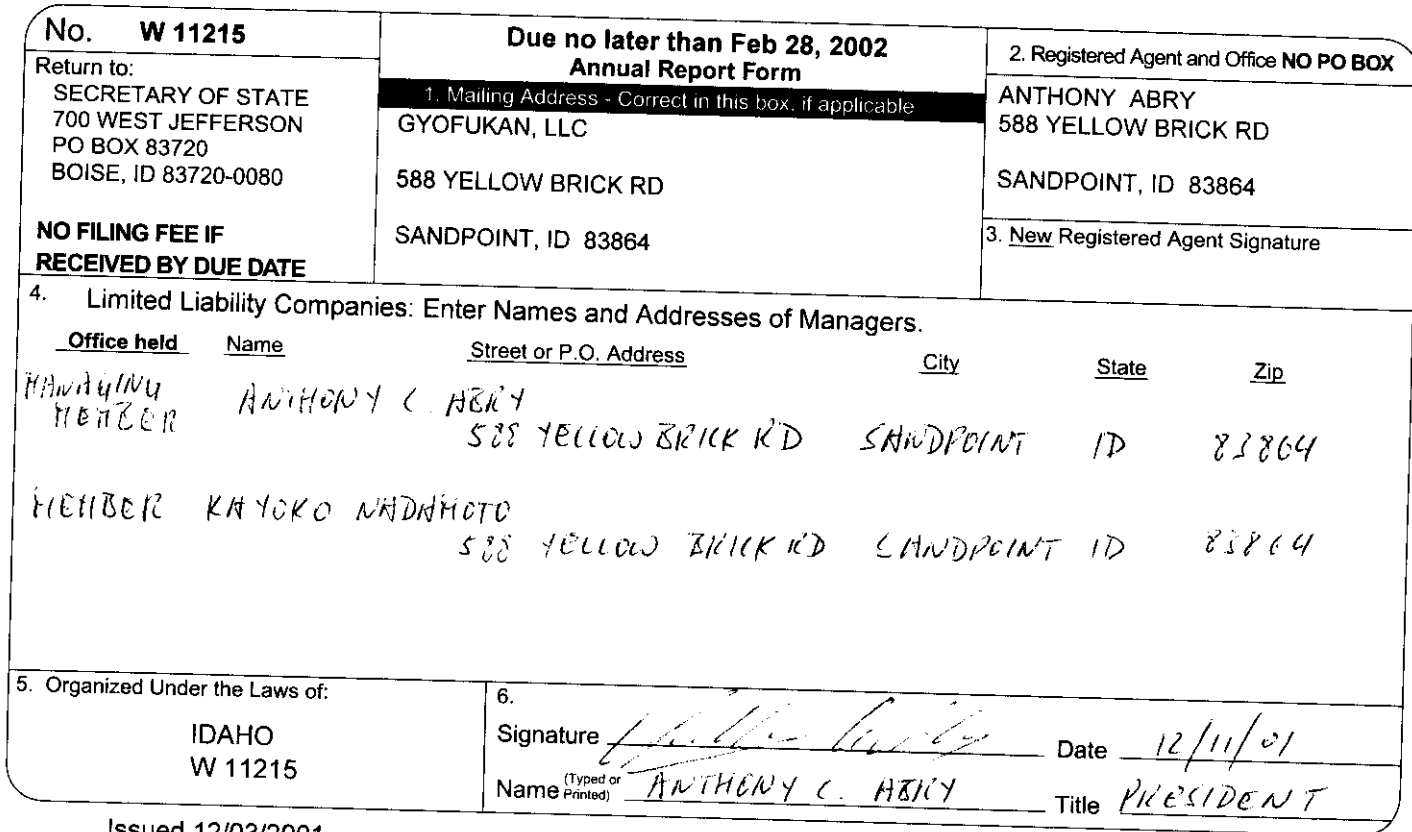 No. W 11215
Return to:
SECRETARY OF STATE
700 WEST JEFFERSON
PO BOX 83720
BOISE, ID 83720-0080
NO FILING FEE IF
RECEIVED BY DUE DATE
Due no later than Feb 28, 2002
Annual Report Form
1. Mailing Address - Correct in this box, if applicable
GYOFUKAN, LLC
588 YELLOW BRICK RD
SANDPOINT, ID 83864
2. Registered Agent and Office NO PO BOX
ANTHONY ABRY
588 YELLOW BRICK RD
SANDPOINT, ID 83864
3. New Registered Agent Signature
4. Limited Liability Companies: Enter Names and Addresses of Managers.
Office held Name Street or P.O. Address City State Zip
MANAGING
MEMBER ANTHONY C. ABRY
588 YELLOW BRICK RD SANDPOINT ID 83864
MEMBER KAYOKO NADAMOTO
588 YELLOW BRICK RD SANDPOINT ID 83864
5. Organized Under the Laws of:
IDAHO
W 11215
6.
Signature Date 12/11/01
Name (Typed or Printed) ANTHONY C. ABRY Title PRESIDENT
Issued 12/03/2001